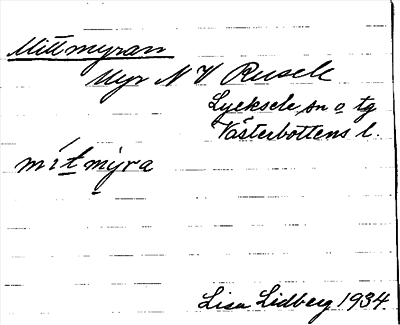 Mittmyran
Myr N V Rusele
Lycksele sn o tg
Västerbottens l.
mítmyra
Lisa Lidberg 1934.